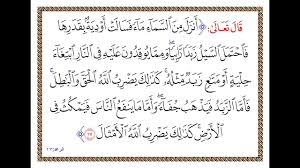 قَالَ تَعَالَى: أَنزَلَ مِنَ ٱلسَّمَآءِ مَآءً فَسَالَتْ أَوْدِيَةٌۢ بِقَدَرِهَا
فَٱحْتَمَلَ ٱلسَّيْلُ زَبَدًا رَّابِيًا ۚ وَمِمَّا يُوقِدُونَ عَلَيْهِ فِي ٱلنَّارِ ٱبْتِغَآءَ
حِلْيَةٍ أَوْ مَتَٰعٍ زَبَدٌ مِّثْلُهُۥ ۚ كَذَٰلِكَ يَضْرِبُ ٱللَّهُ ٱلْحَقَّ وَٱلْبَٰطِلَ ۚ
فَأَمَّا ٱلزَّبَدُ فَيَذْهَبُ جُفَآءً ۖ وَأَمَّا مَا يَنفَعُ ٱلنَّاسَ فَيَمْكُثُ فِي
ٱلْأَرْضِ ۚ كَذَٰلِكَ يَضْرِبُ ٱللَّهُ ٱلْأَمْثَالَ ١٧